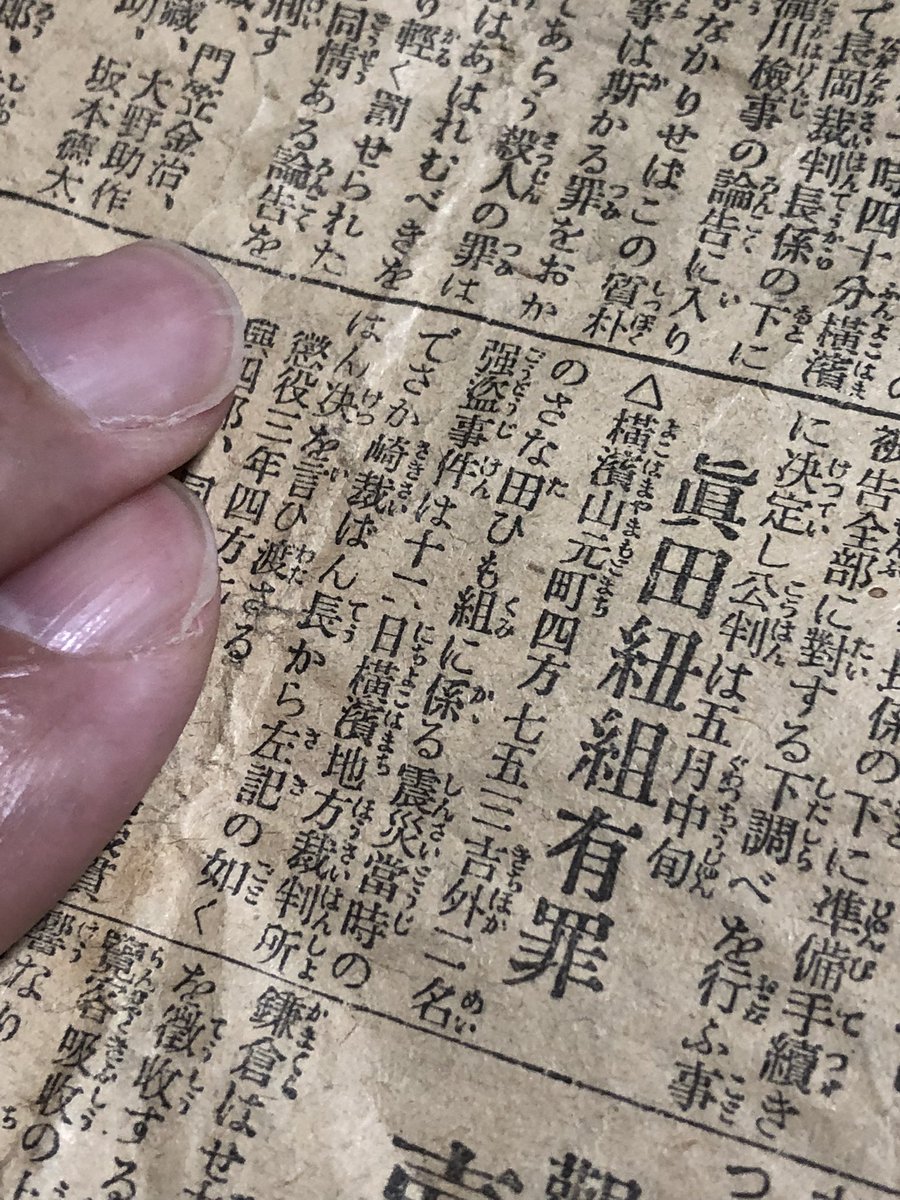 一時四十分橫濱
て長岡裁判長係の下に
瀧川檢事の論告に入り
なかりせばこの質朴
等は斯かる罪をおか
であらう殺人の罪は
はあはれむべきを
り輕く罰せられた
同情ある論告を
刑す
門笠金治、
大野助作
坂本德太
被告全部に對する下調べを行ふ事
長係の下に準備手續き
に決定し公判は五月中旬
眞田紐組有罪
△橫濱山元町四方七五三吉外二名
のさな田ひも組に係る震災當時の
强盜事件は十二日橫濱地方裁判所
でさか崎裁ばん長から左記の如く
はん決を言ひ渡さる
懲役三年四方
興四郎、同
鎌倉はせ
を徵收する
覽客吸收の
響なり